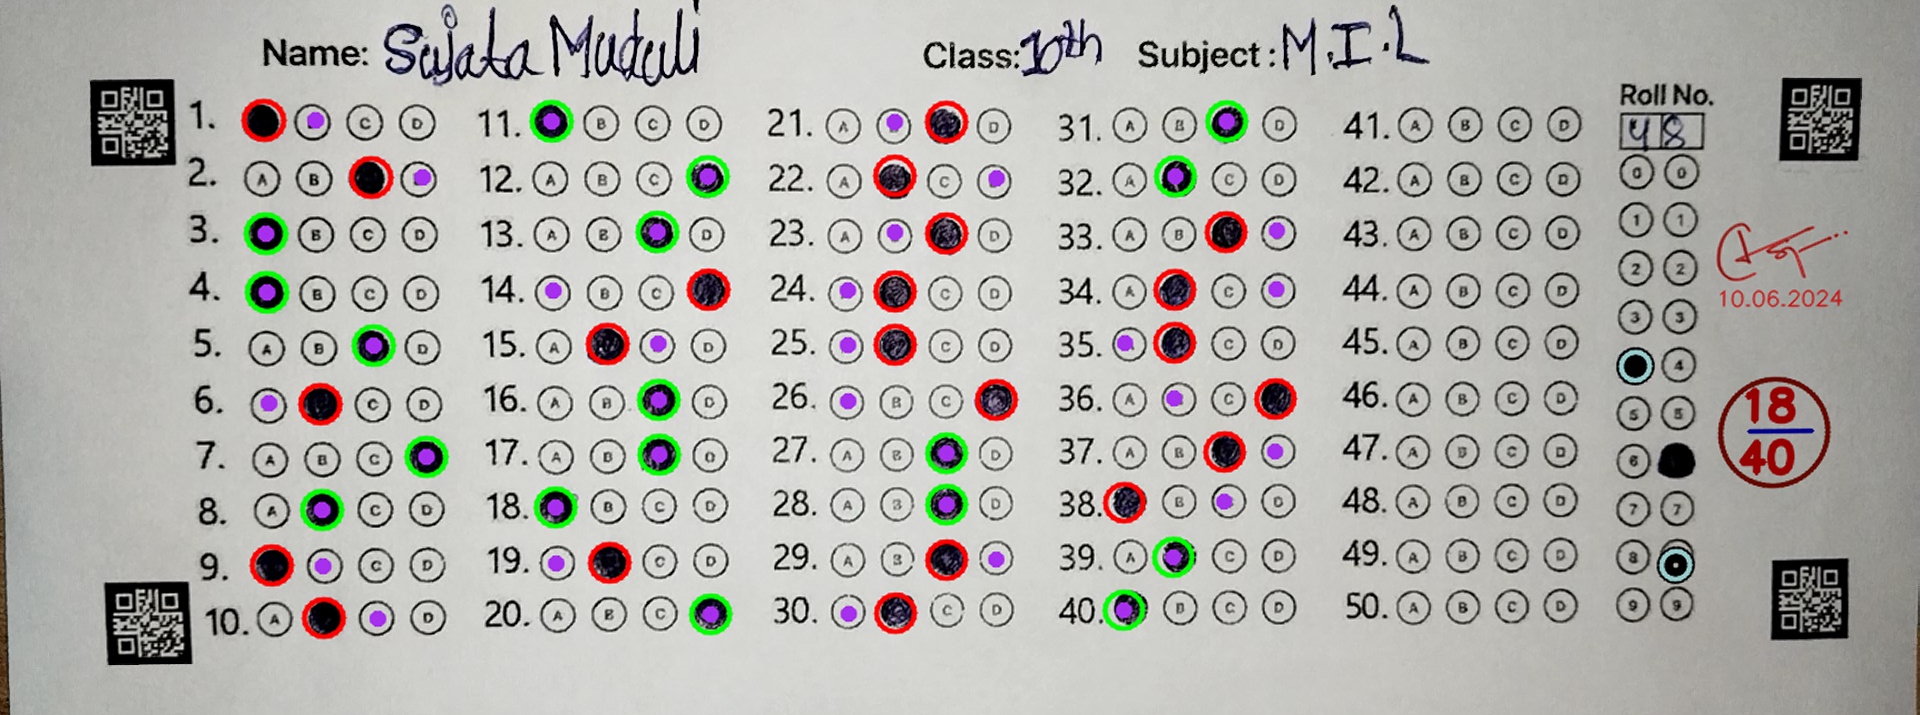 Name: Sujata Muduli Class: 10th Subject : M.I.L
Roll No.
48
1. B C D
2. A B
3. B C D
4. B C D
5. A B D
6. C D
7. A B C
8. A C D
9. C D
10. A D
11. B C D
12. A B C
13. A B D
14. B C
15. A D
16. A B D
17. A B D
18. B C D
19. C D
20. A B C
21. A D
22. A C
23. A D
24. C D
25. C D
26. B C
27. A B D
28. A B D
29. A B
30. C D
31. A B D
32. A C D
33. A B
34. A C
35. C D
36. A C
37. A B
38. B D
39. A C D
40. B C D
41. A B C D
42. A B C D
43. A B C D
44. A B C D
45. A B C D
46. A B C D
47. A B C D
48. A B C D
49. A B C D
50. A B C D
0 0
1 1
2 2
3 3
4
5 5
6
7 7
8
9 9
10.06.2024
18
40